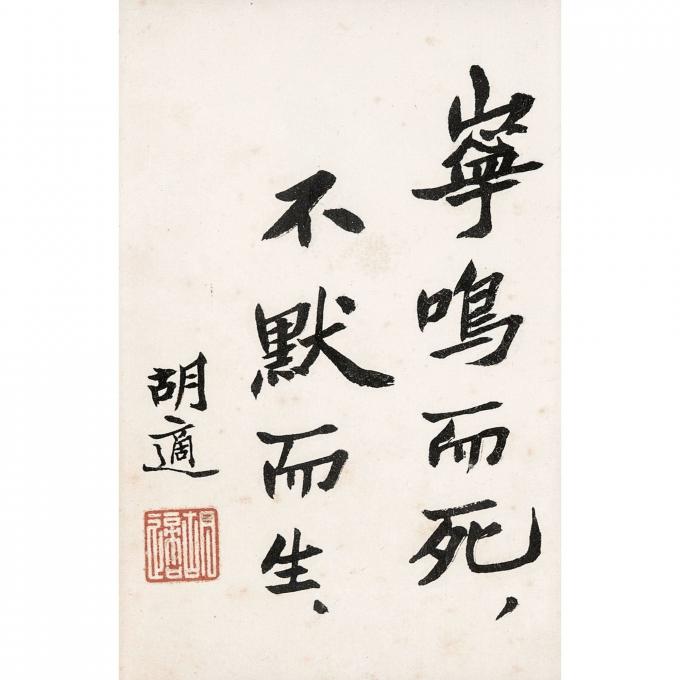 寧鳴而死，
不默而生、
胡適
胡適